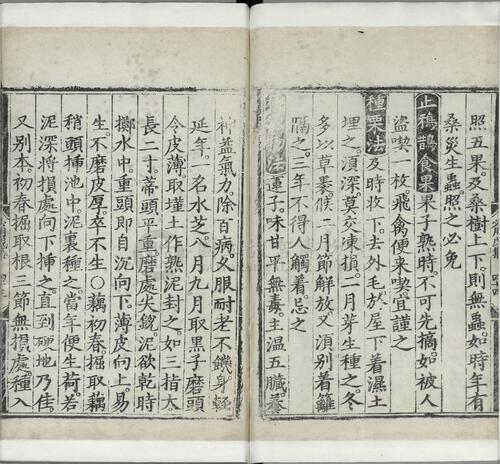 照五果。及桑樹上下。則無蟲。如時年有
桑災生蟲。照之必免
止鵶鵲食果 果子熟時。不可先摘。如被人
盜喫 枚。飛禽便來喫。宜謹之
種栗法 及時收下。去外毛。於屋下着濕土
埋之。須深莫交凍損。二月芽生種之。冬
多以草裹。候二月節解放。又須別着籬
隔之。三年不得人觸着。忌之
法 蓮子。味甘平無毒。主温五臓。養
神益氣力。除百病。久服耐老不饑。身輕
延年。一名水芝。八月九月取黒子磨頭
令皮薄。取墐土作熟泥封之。如三指大。
長二寸。蒂頭平重。磨處尖銳。泥欲乾時
擲水中。重頭即自沉向下。薄皮向上。易
生。不磨皮厚。卒不生○藕初春。掘取藕
稍頭插池中。泥裏種之。當年便生荷。若
泥深將損處向下插之。直到硬地乃佳。
又別本。初春掘取根三節無損處。種入